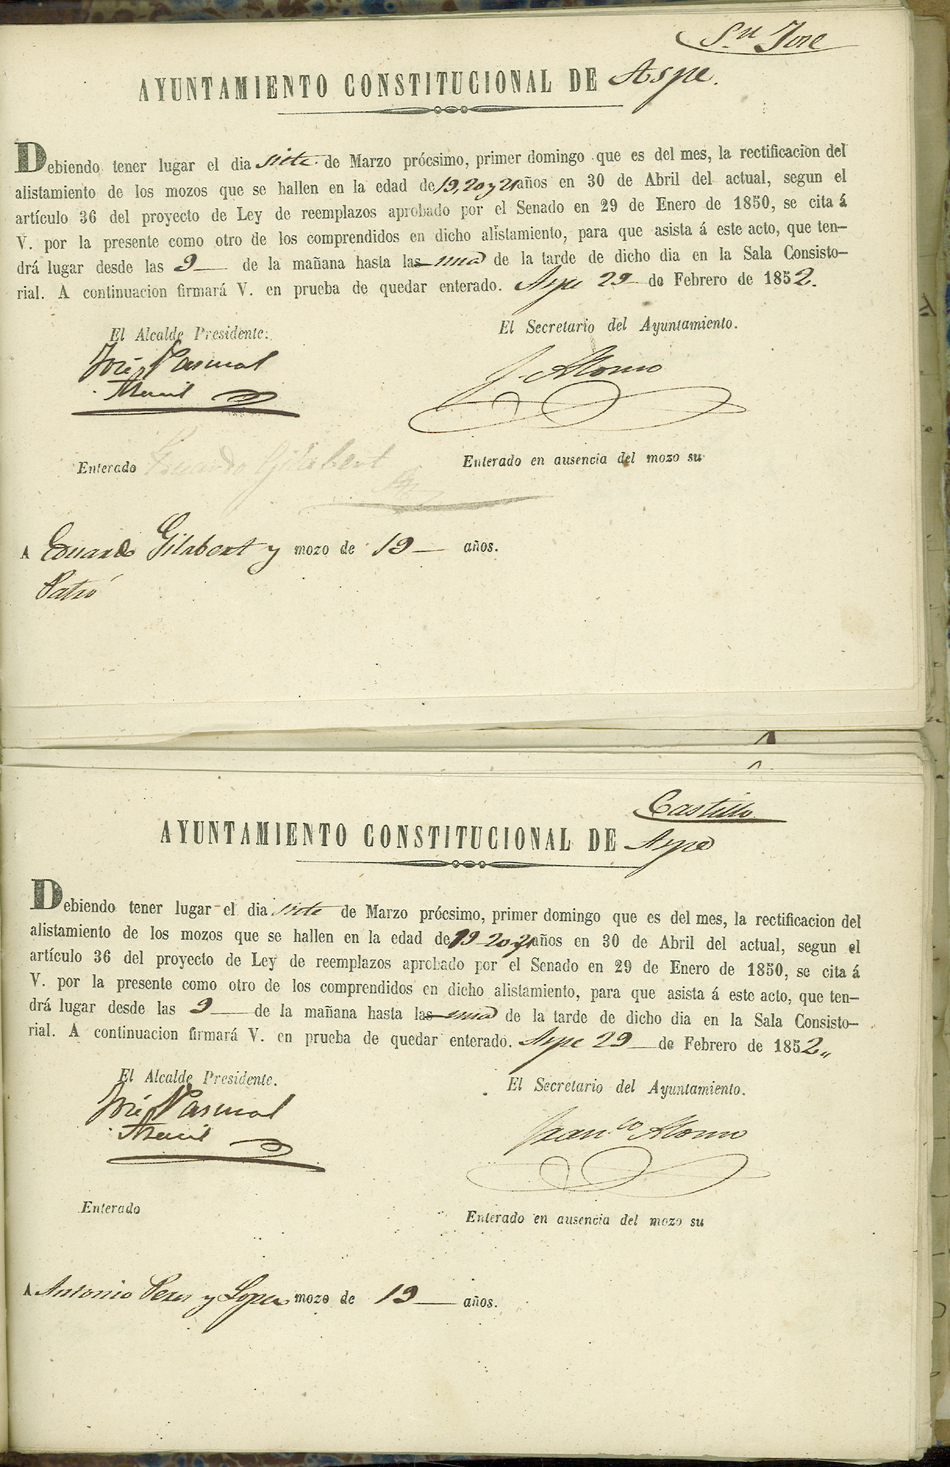 Sn Jose
AYUNTAMIENTO CONSTITUCIONAL DE Aspe.
Debiendo tener lugar el dia siete de Marzo prócsimo, primer domingo que es del mes, la rectificacion del
alistamiento de los mozos que se hallen en la edad de 19, 20 y 21 años en 30 de Abril del actual, segun el
artículo 36 del proyecto de Ley de reemplazos aprobado por el Senado en 29 de Enero de 1850, se cita á
V. por la presente como otro de los comprendidos en dicho alistamiento, para que asista á este acto, que ten-
drá lugar desde las 9 de la mañana hasta las una de la tarde de dicho dia en la Sala Consisto-
rial. A continuacion firmará V. en prueba de quedar enterado. Aspe 29 de Febrero de 1852.
El Alcalde Presidente. El Secretario del Ayuntamiento.
José Pascual J. Alonso
Enterado Eduardo Gilabert Enterado en ausencia del mozo su
A Eduardo Gilabert y mozo de 19 años.
Castillo
AYUNTAMIENTO CONSTITUCIONAL DE Aspe
Debiendo tener lugar el dia siete de Marzo prócsimo, primer domingo que es del mes, la rectificacion del
alistamiento de los mozos que se hallen en la edad de 19 20 y 21 años en 30 de Abril del actual, segun el
artículo 36 del proyecto de Ley de reemplazos aprobado por el Senado en 29 de Enero de 1850, se cita á
V. por la presente como otro de los comprendidos en dicho alistamiento, para que asista á este acto, que ten-
drá lugar desde las 9 de la mañana hasta las una de la tarde de dicho dia en la Sala Consisto-
rial. A continuacion firmará V. en prueba de quedar enterado. Aspe 29 de Febrero de 1852
El Alcalde Presidente. El Secretario del Ayuntamiento.
José Pascual Alonso
Enterado Enterado en ausencia del mozo su
A Antonio Perez y Lopez mozo de 19 años.